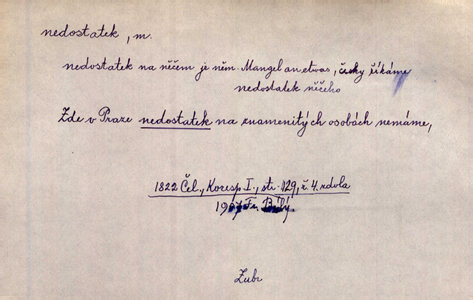 nedostatek, m.
nedostatek na něčem je něm Mangel an etwas, česky říkáme
nedostatek něčeho
Zde v Praze nedostatek na znamenitých osobách nemáme,
1822 Čel., Koresp I., str. 129, ř. 4. zdola
1907 Fr. Bílý
Zubr